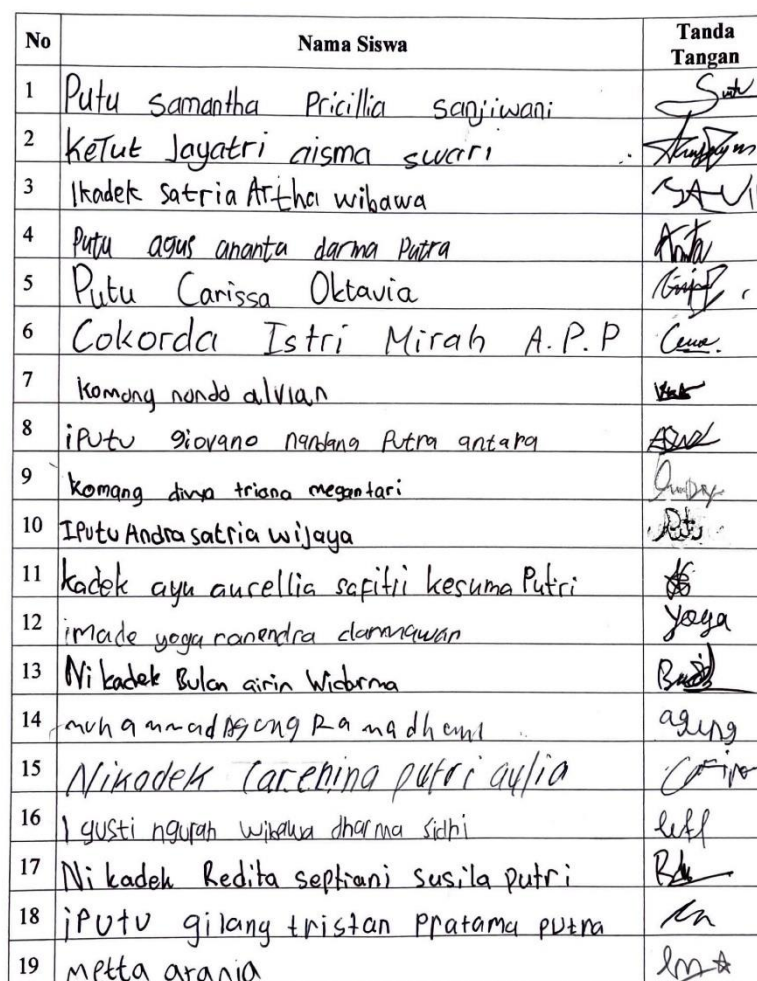 No Nama Siswa Tanda Tangan
1 Putu Samantha Pricillia Sanjiwani
2 KeTut Jayatri aisma swari
3 Ikadek Satria Artha wibawa
4 Putu agus ananta darma Putra
5 Putu Carissa Oktavia
6 Cokorda Istri Mirah A.P.P
7 komang nanda alvian
8 iPutu giovano nandana Putra antara
9 komang divya triana megantari
10 IPutu Andra satria wijaya
11 kadek ayu aurellia safitri kesuma Putri
12 imade yoga nanendra darmawan yoga
13 Ni kadek Bulan airin
14 muhammad Agung Ramadhani agung
15 Nikadek Carenina putri aulia
16 I gusti ngurah wibawa dharma sidhi
17 Ni kadek Redita septiani susila putri
18 iPUtU gilang tristan pratama putra
19 metta arania